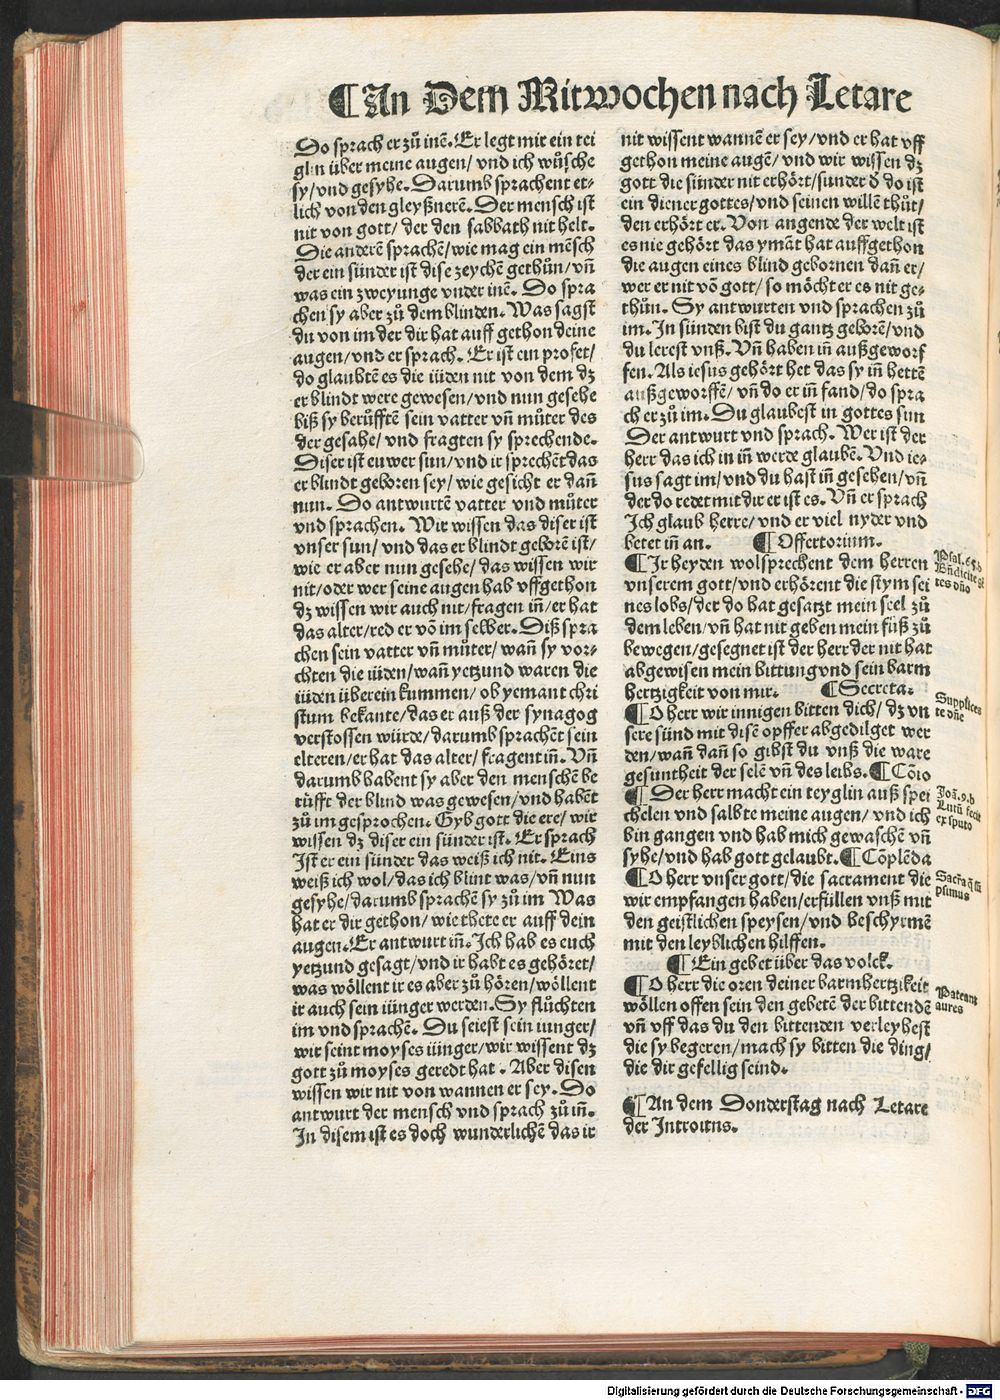 ¶An Dem Mitwochen nach Letare
Do sprach er zů inē. Er legt mir ein tei
glin über meine augen/ vnd ich wůsche
sy/vnd gesyhe. Darumb sprachent et⸗
lich von den gleyßnerē. Der mensch ist
nit von gott/ der den sabbath nit helt.
Die anderē sprachē/wie mag ein mēsch
der ein sünder ist dise zeychē gethůn/ vn̄
was ein zweyunge vnder inē. Do spra
chen sy aber zů dem blinden. Was sagst
du von im der dir hat auff gethon deine
augen/vnd er sprach. Er ist ein profet/
do glaubtē es die iüden nit von dem dz
er blindt were gewesen/ vnd nun gesehe
biß sy berüfftē sein vatter vn̄ můter des
der gesahe/ vnd fragten sy sprechende.
Diser ist euwer sun/vnd ir sprechēt das
er blindt geboren sey/ wie gesicht er dan̄
nun. Do antwurtē vatter vnd můter
vnd sprachen. Wir wissen das diser ist
vnser sun/ vnd das er blindt geborē ist/
wie er aber nun gesehe/ das wissen wir
nit/oder wer seine augen hab vffgethon
dz wissen wir auch nit/fragen in̄/er hat
das alter/red er vō im selber. Diß spra
chen sein vatter vn̄ můter/ wan̄ sy vor⸗
chten die iüden/wan̄ yetzund waren die
iüden überein kummen/ ob yemant chri
stum bekante/das er auß der synagog
verstossen würde/darumb sprachēt sein
elteren/er hat das alter/ fragent in̄. Vn̄
darumb habent sy aber den menschē be
rüfft der blind was gewesen/vnd habēt
zů im gesprochen. Gyb gott die ere/ wir
wissen dz diser ein sünder ist. Er sprach
Ist er ein sünder das weiß ich nit. Eins
weiß ich wol/das ich blint was/vn̄ nun
gesyhe/darumb sprachē sy zů im Was
hat er dir gethon/ wie thete er auff dein
augen. Er antwurt in̄. Ich hab es euch
yetzund gesagt/vnd ir habt es gehöret/
was wöllent ir es aber zů hören/wöllent
ir auch sein iünger werden. Sy flüchten
im vnd sprachē. Du seiest sein iunger/
wir seint moyses iünger/wir wissent dz
gott zů moyses geredt hat. Aber disen
wissen wir nit von wannen er sey. Do
antwurt der mensch vnd sprach zů in̄.
In disem ist es doch wunderlichē das ir
nit wissent wannē er sey/vnd er hat vff
gethon meine augē/ vnd wir wissen dz
gott die sünder nit erhört/sunder d̄ do ist
ein diener gottes/vnd seinen willē thůt/
den erhört er. Von angende der welt ist
es nie gehört das ymāt hat auffgethon
die augen eines blind gebornen dan̄ er/
wer er nit vō gott/ so möcht er es nit ge⸗
thůn. Sy antwurten vnd sprachen zů
im. In sünden bist du gantz geborē/vnd
du lerest vnß. Vn̄ haben in̄ außgeworf
fen. Als iesus gehört het das sy in̄ hettē
außgeworffē/ vn̄ do er in̄ fand/do spra
ch er zů im. Du glaubest in gottes sun
Der antwurt vnd sprach. Wer ist der
herr das ich in in̄ werde glaubē. Vnd ie⸗
sus sagt im/vnd du hast in̄ gesehen/vn̄
der do redet mit dir er ist es. Vn̄ er sprach
Ich glaub herre/vnd er viel nyder vnd
betet in̄ an. ¶Offertorium.
¶Ir heyden wolsprechent dem herren
vnserem gott/vnd erhörent die stym sei
nes lobs/der do hat gesatzt mein seel zů
dem leben/vn̄ hat nit geben mein füß zů
bewegen/gesegnet ist der herr der nit hat
abgewisen mein bittung vnd sein barm
hertzigkeit von mir. ¶Secreta.
¶O herr wir innigen bitten dich/ dz vn
sere sünd mit disē opffer abgedilget wer
den/wan̄ dan̄ so gibst du vnß die ware
gesuntheit der selē vn̄ des leibs. ¶Cōio
¶Der herr macht ein teyglin auß spei
chelen vnd salbte meine augen/ vnd ich
bin gangen vnd hab mich gewaschē vn̄
syhe/vnd hab gott gelaubt. ¶Cōplēda
¶O herr vnser gott/die sacrament die
wir empfangen haben/erfüllen vnß mit
den geistlichen speysen/vnd beschyrmē
mit den leyblichen hilffen.
¶Ein gebet über das volck.
¶O herr die oren deiner barmhertzikeit
wöllen offen sein den gebetē der bittendē
vn̄ vff das du den bittenden verleyhest
die sy begeren/mach sy bitten die ding/
die dir gefellig seind.
¶An dem Donderstag nach Letare
der Introitns.
Psal. 65.b
Bn̄dicite gē
tes dn̄o
Supplices
te dn̄e
Joā.9.b
Lutū fecit
ex sputo
Sacr̄a q̄ sū
psimus
Pateant
aures
Digitalisierung gefördert durch die Deutsche Forschungsgemeinschaft - DFG